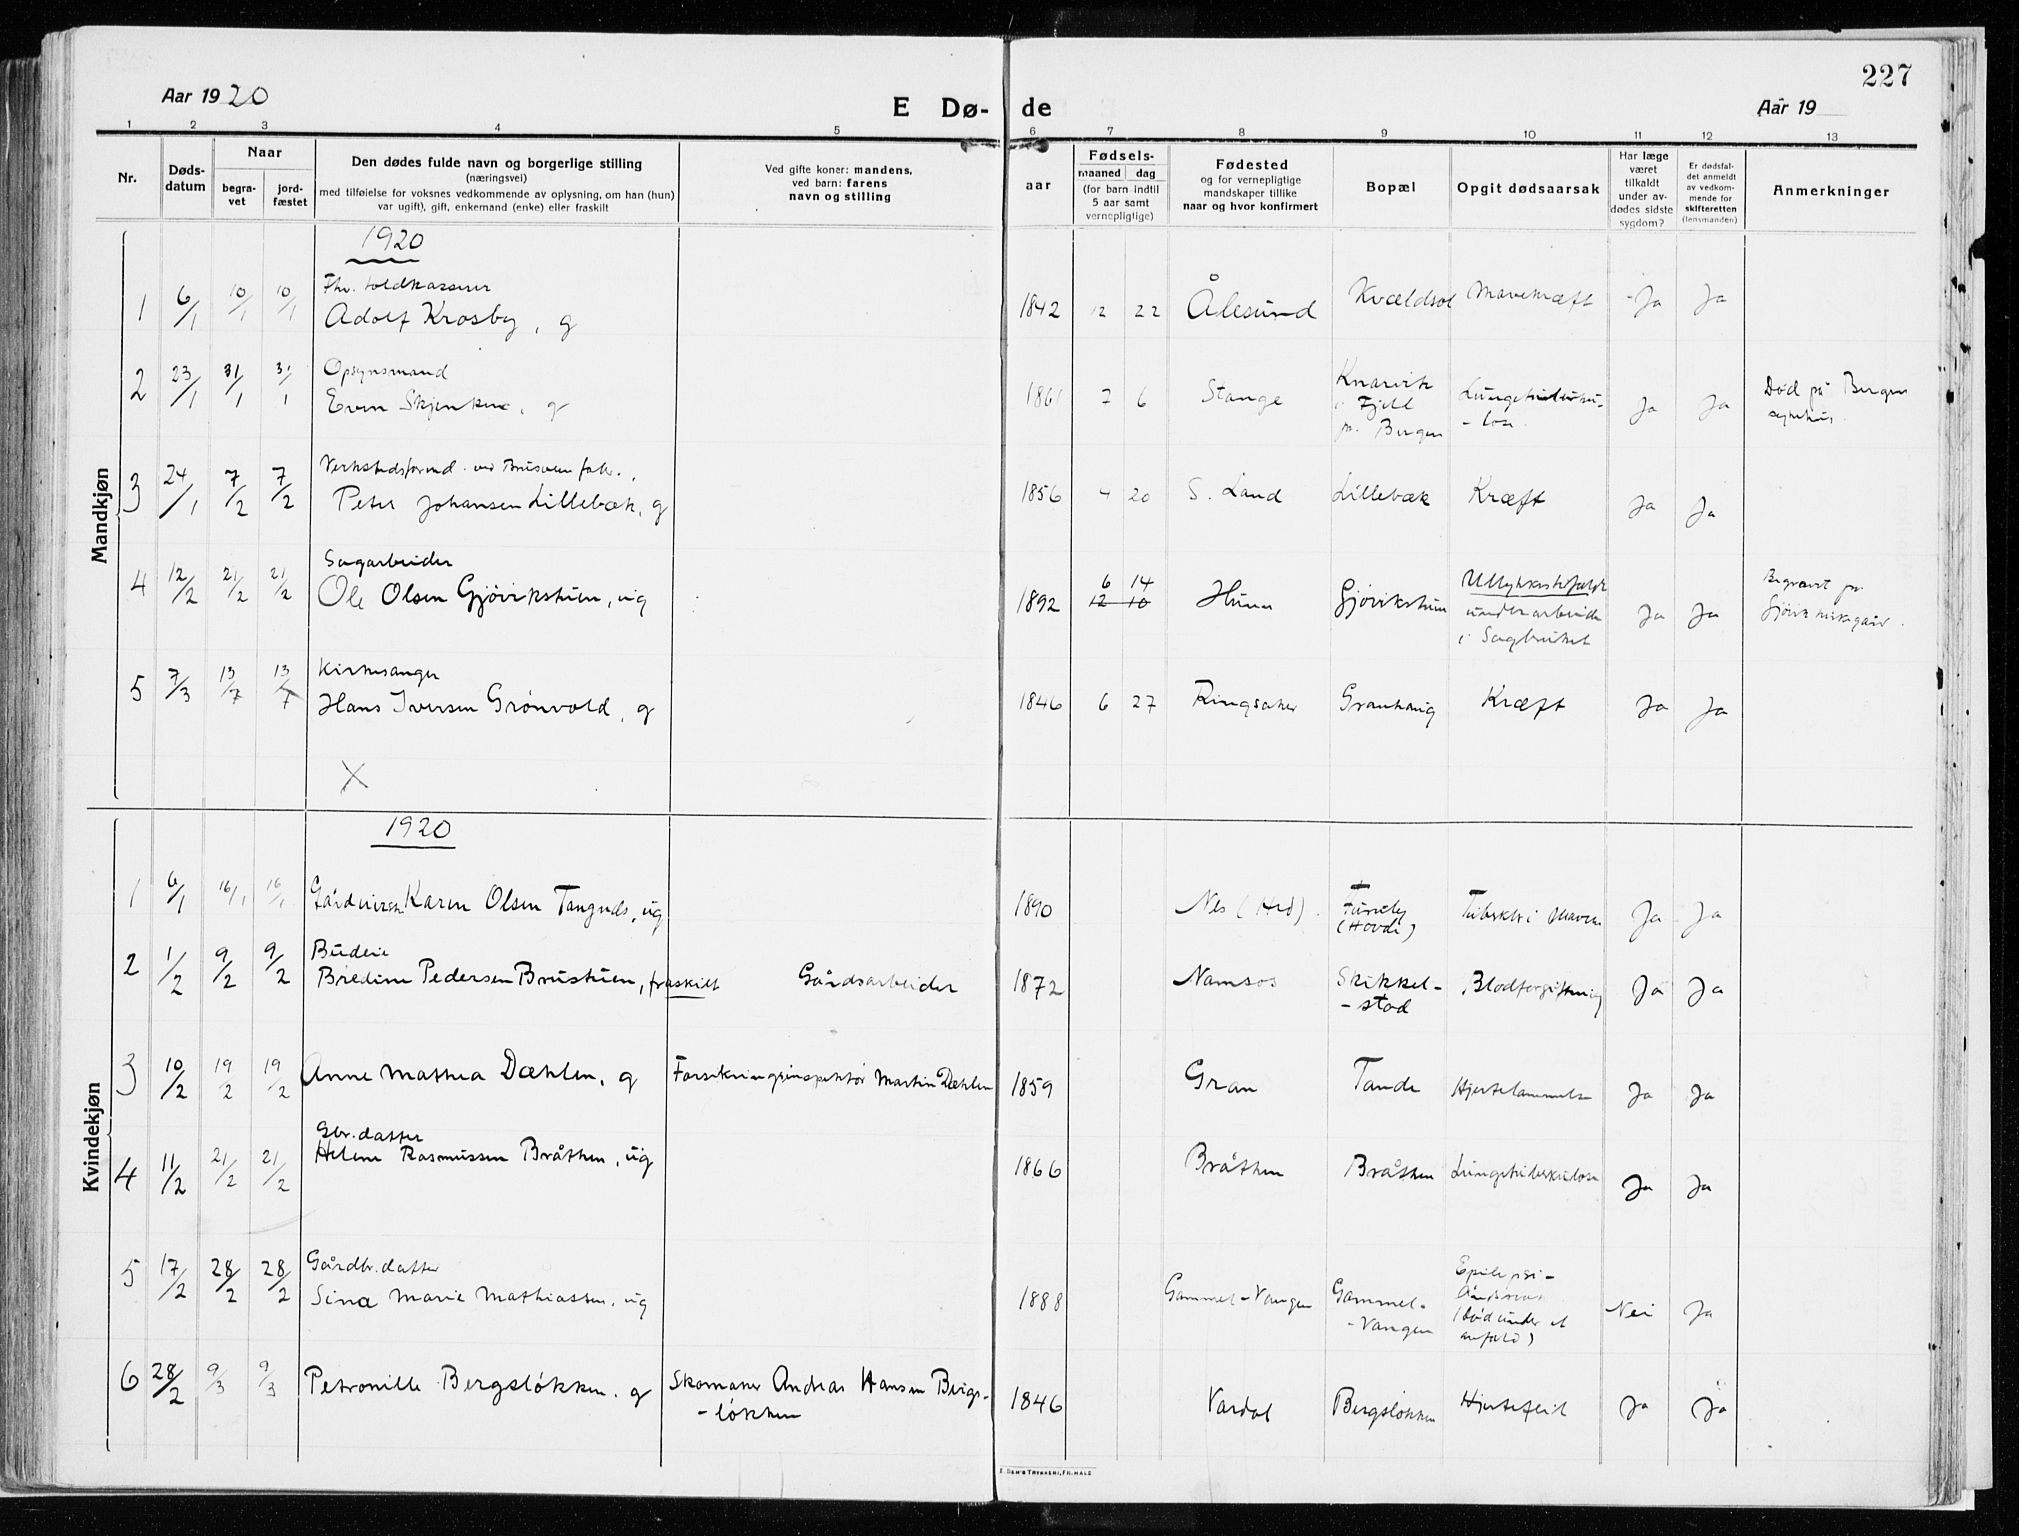 227
Aar 1920
E Dø-de
Aar 19
1 2 3 4 5 6 7 8 9 10 11 12 13
Nr.
Døds-
datum
Naar
begra-
vet
jord-
fæstet
Den dødes fulde navn og borgerlige stilling
(næringsvei)
med tilføielse for voksnes vedkommende av oplysning, om han (hun)
var ugift), gift, enkemand (enke) eller fraskilt
Ved gifte koner: mandens,
ved barn: farens
navn og stilling
aar
Fødsels-
maaned dag
(for barn indtil
5 aar samt
vernepligtige)
Fødested
og for vernepligtige
mandskaper tillike
naar og hvor konfirmert
Bopæl
Opgit dødsaarsak
Har læge
været
tilkaldt
under av-
dødes sidste
sygdom?
Er dødsfal-
det anmeldt
av vedkom-
mende for
skifteretten
(lensmanden)
Anmerkninger
Mandkjøn
1920
Fhv. toldkasserer
1 6/1 10/1 10/1 Adolf Krosby, g 1842 12 22 Ålesund Kvældsol Mavekræft Ja Ja
Opsynsmand
2 23/1 31/1 31/1 Even Skjenken, g 1861 7 6 Stange Knarvik
i Fjell
pr. Bergen
Lungetuberku-
-lose Ja Ja Død på Bergen
sykehus
Verkstedsformd. ved Brusveen fabr.
3 24/1 7/2 7/2 Peter Johansen Lillebæk, g 1856 4 20 S. Land Lillebæk Kræft Ja Ja
Sagarbeider
4 12/2 21/2 21/2 Ole Olsen Gjøvikstuen, ug 1892 6 14
12 10 Hunn Gjøvikstuen Ullykkestilfælde
under arbeide
i Sagbruket Ja Ja Begravet på
Gjøvik kirkegård.
Kirkesanger
5 7/3 13/7 13/7 Hans Iversen Grønvold, g 1846 6 27 Ringsaker Granhaug Kræft Ja Ja
X
Kvindekjøn
1920
1 6/1 16/1 16/1 Karen Olsen Tangnes, ug 1890 Nes (Hed). Furuly
(Hovde) Tuberkler i Maven Ja Ja
Budeie
2 1/2 9/2 9/2 Bredine Pedersen Brustuen, fraskilt Gårdsarbeider 1872 Namsos Skikkel-
-stad Blodforgiftning Ja Ja
3 10/2 19/2 19/2 Anne Mathea Dæhlen, g Forsikringsinspektør Martin Dæhlen 1859 Gran Tande Hjertelammelse Ja Ja
Gbr.datter
4 11/2 21/2 21/2 Helene Rasmussen Bråthen, ug 1866 Bråthen Bråthen Lungetuberkulose Ja Ja
Gårdbr.datter
5 17/2 28/2 28/2 Sina Marie Mathiassen, ug 1888 Gammel-Vangen Gammel-
-Vangen Epilepsi-
Åndssvak
(død under et
anfald) Nei Ja
6 28/2 9/3 9/3 Petronille Bergsløkken, g Skomaker Andreas Hansen Bergs-
-løkken 1846 Vardal Bergsløkken Hjertefeil Ja Ja
E. SEM'S TRYKKERI, FR.HALD